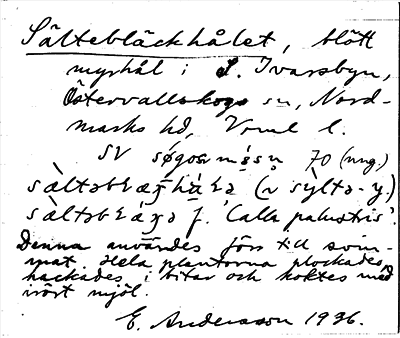 Sältebläckhålet, blött
myrhål i S. Ivarsbyn,
Östervallskogs sn, Nord-
marks hd, Vrml l.
SV søgom måsn 70 (ung.)
sàltəbɫæ̨hɫə (ѵ sỳltə-y.)
sàltəbɫákə f. 'Calla palustris'.
Denna användes förr till svin-
mat. Hela plantorna plockades,
hackades i bitar och koktes med
irört mjöl.
E. Andersson 1936.